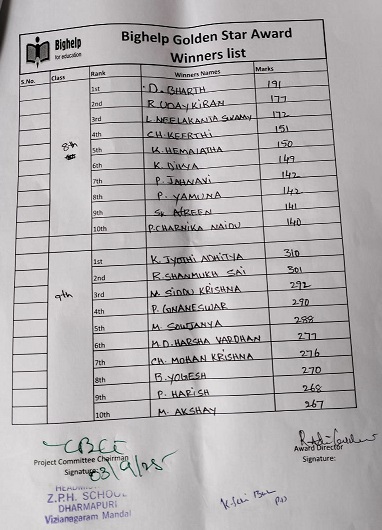 Bighelp
for education
Bighelp Golden Star Award
Winners list
S.No. Class Rank Winners Names Marks
8th
1st D. BHARTH 191
2nd R. UDAY KIRAN 177
3rd L. NEELAKANTA SWAMY 172
4th CH. KEERTHI 151
5th K. HEMALATHA 150
6th K. DIVYA 149
7th P. JAHNAVI 142
8th P. YAMUNA 142
9th SK. AFREEN 141
10th P. CHARNIKA NAIDU 140
9th
1st K. JYOTHI ADHITYA 310
2nd R. SHANMUKH SAI 301
3rd M. SIDDU KRISHNA 292
4th P. GNANESWAR 290
5th M. SOUJANYA 288
6th M.D. HARSHA VARDHAN 277
7th CH. MOHAN KRISHNA 276
8th B. YOGESH 270
9th P. HARISH 268
10th M. AKSHAY 267
Project Committee Chairman
Signature:
Award Director
Signature:
Z.P.H. SCHOOL
DHARMAPURI
Vizianagaram Mandal